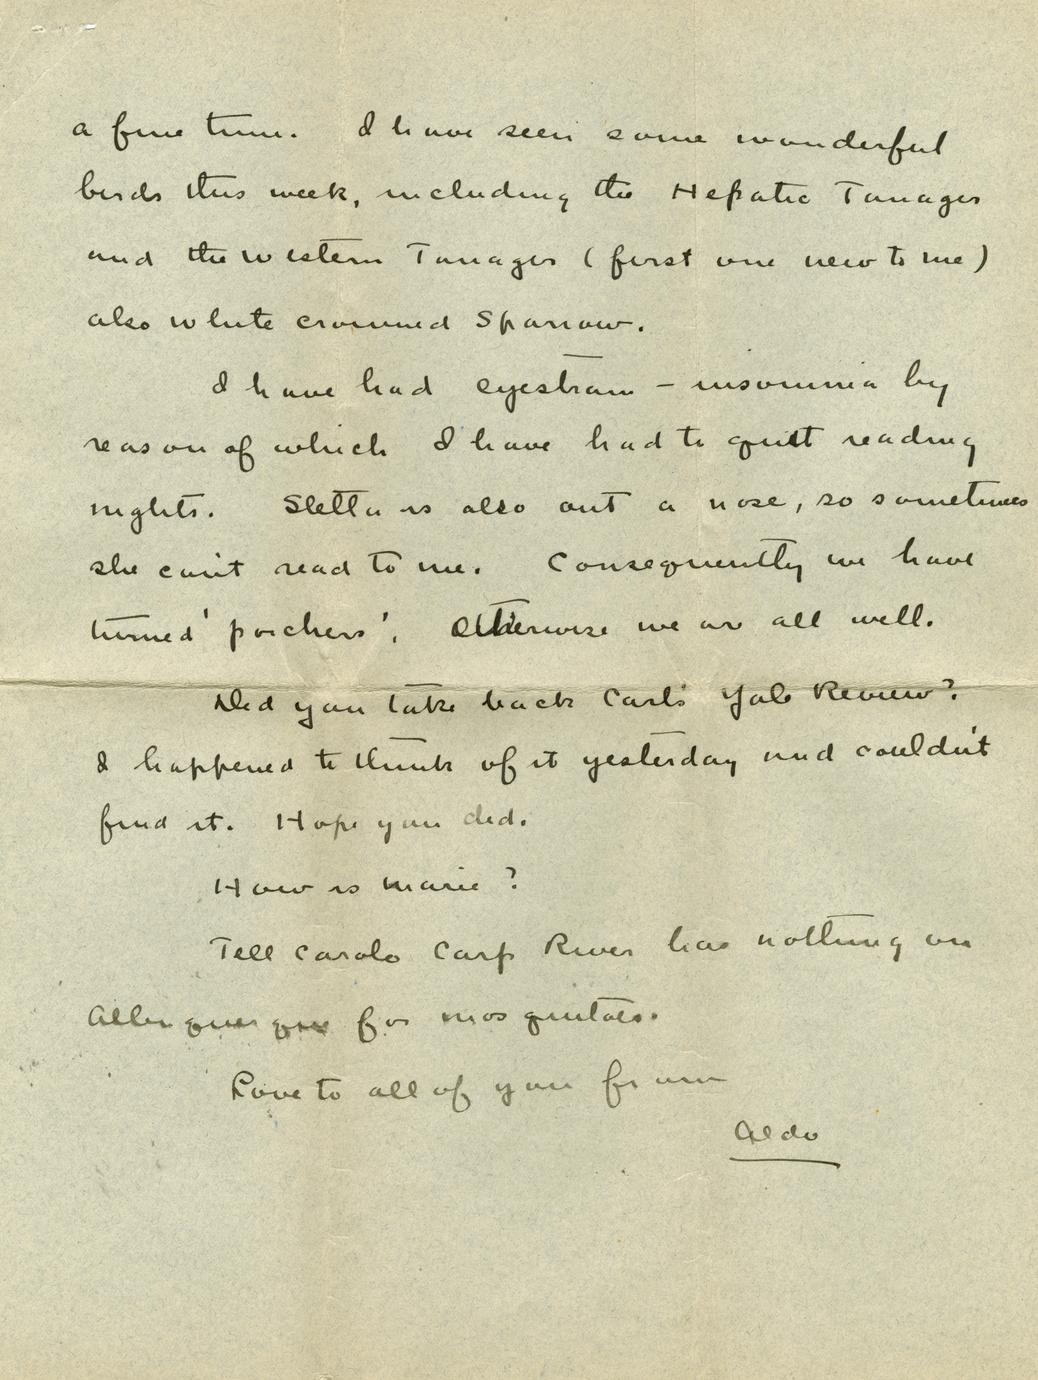 a fine time. I have seen some wonderful
birds this week, including the Hepatic Tanager
and the Western Tanager (first one new to me)
also white crowned Sparrow.
I have had eyestrain - insomnia by
reason of which I have had to quit reading
nights. is also out a nose, so sometimes
she can't read to me. Consequently we have
turned 'porchers'. Otherwise we are all well.
Did you take back Carl's Yale Review?
I happened to think of it yesterday and couldn't
find it. Hope you did.
How is Marie?
Tell Carolo Carp River has nothing on
Albuquerque for mosquitoes.
Love to all of you from
Aldo